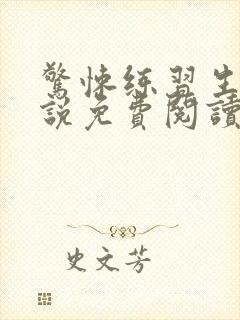 驚悚练習生
説免費閱讀
史文芳